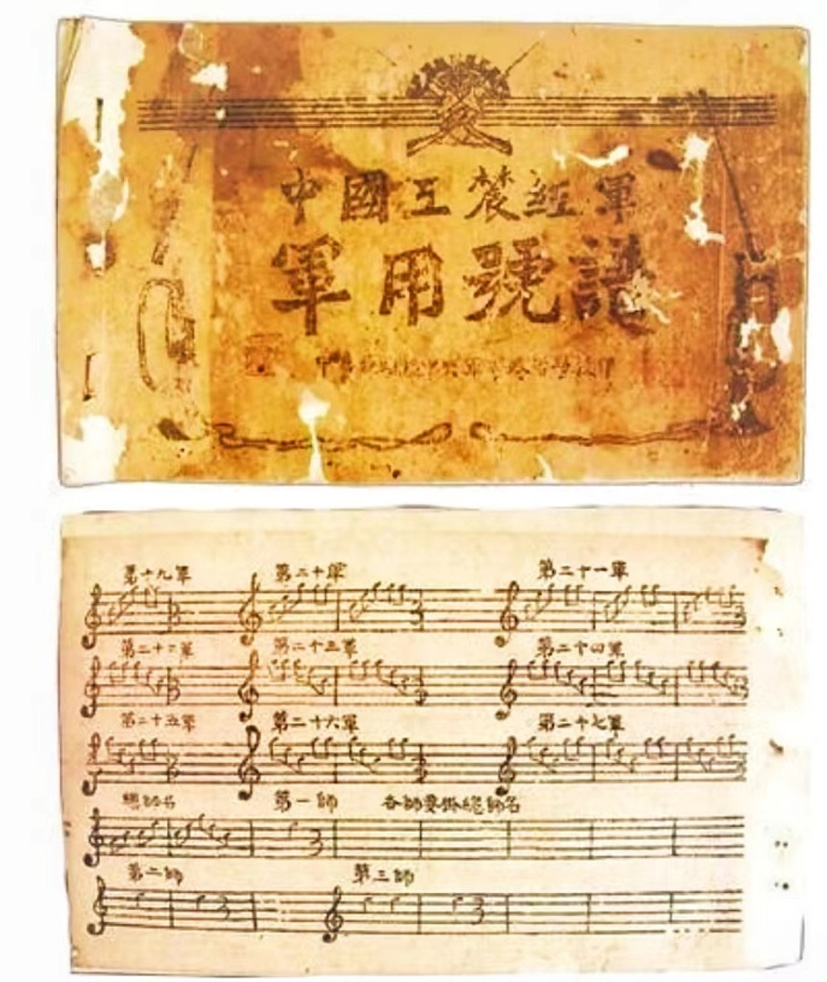 中國工農紅軍
軍用號譜
第十九軍 第二十軍 第二十一軍
第二十二軍 第二十三軍 第二十四軍
第二十五軍 第二十六軍 第二十七軍
總師名 第一師 各師要掛總師名
第二師 第三師